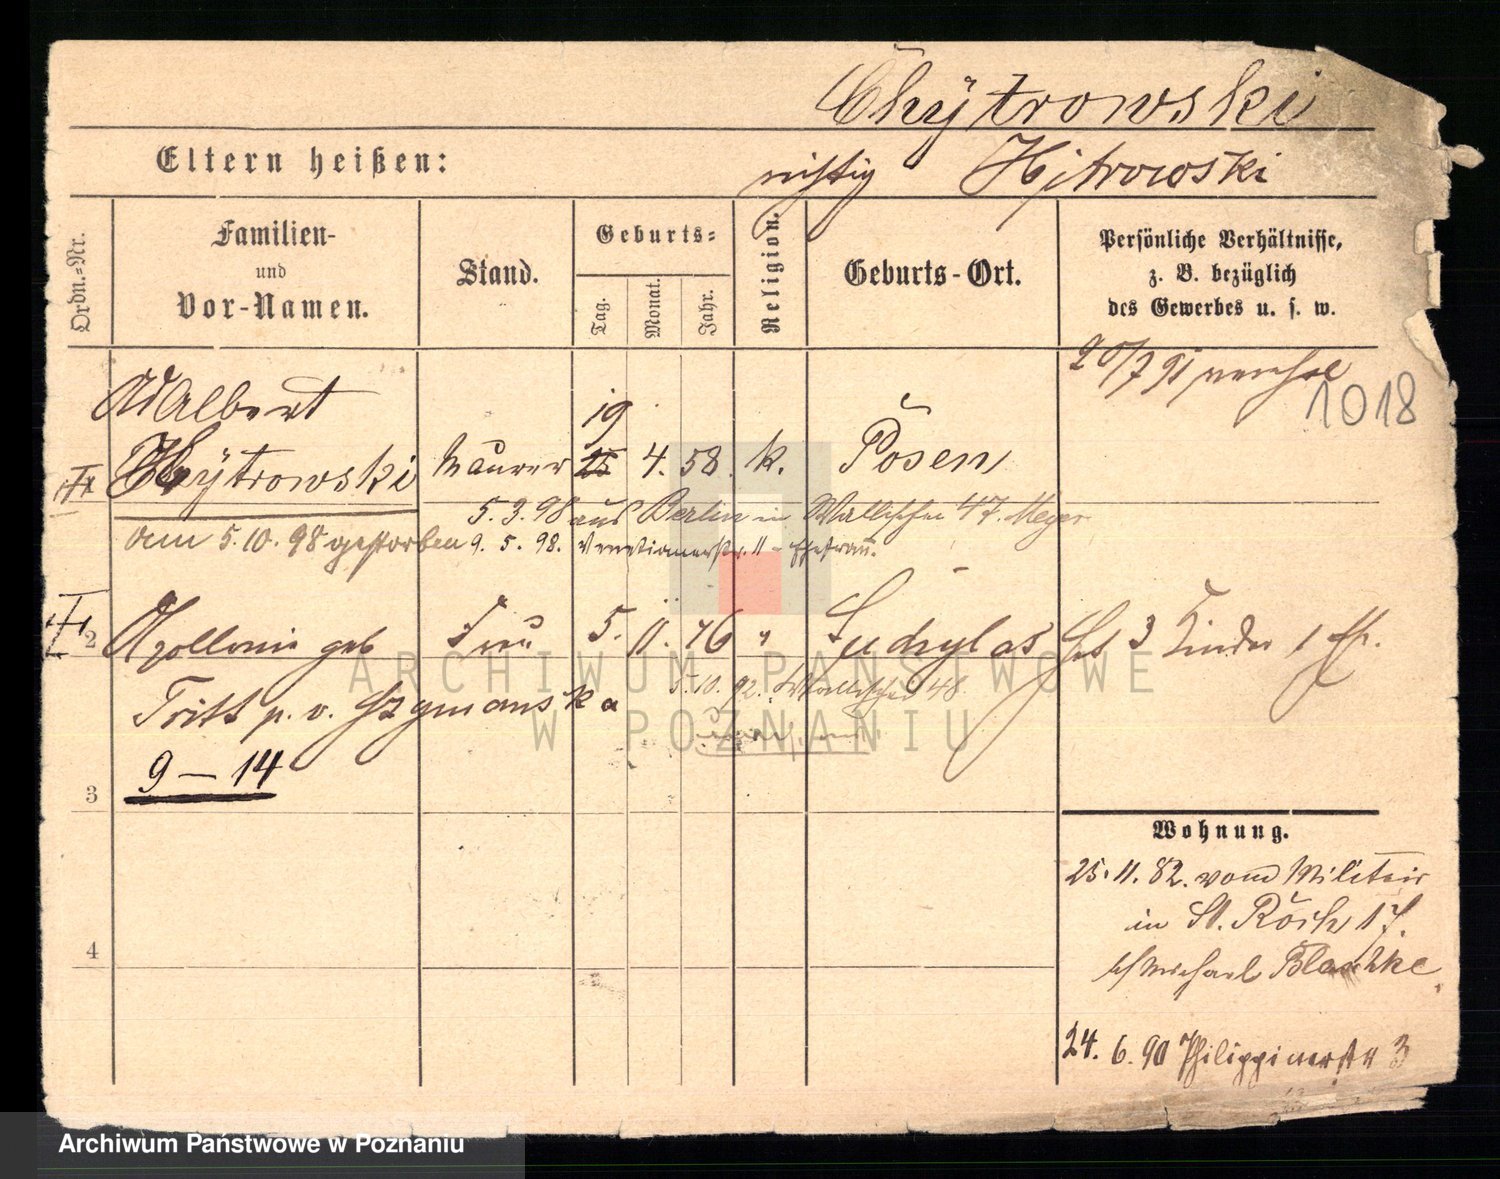 Chÿtrowski
Eltern heißen:
richtig Hÿtrowski
Ordn.-Nr.
Familien-
und
Vor-Namen.
Stand.
Geburts-
Tag.
Monat.
Jahr.
Religion.
Geburts-Ort.
Persönliche Verhältnisse,
z. B. bezüglich
des Gewerbes u. s. w.
20/7 91
1018
Adalbert
Chÿtrowski
Maurer
19
25
4. 58.
k.
Posen
5. 3. 98 aus Berlin in Wallischei 47. Meyer
am 5. 10. 98 gestorben
9. 5. 98. Venetianerstr. 11 - Ehefrau.
2
Apollonia geb
Frau
5. 11. 76
"
hat 3 Kinder 1 Eh.
Tritt p. v. Szymanska
5. 10. 92. Wallischei 48
9 — 14
3
Wohnung.
25. 11. 82. vom Militair
in St. Roch 17.
b/ Michael Blaschke
4
24. 6. 90 Philippinerstr 3
ARCHIWUM PAŃSTWOWE
W POZNANIU
Archiwum Państwowe w Poznaniu